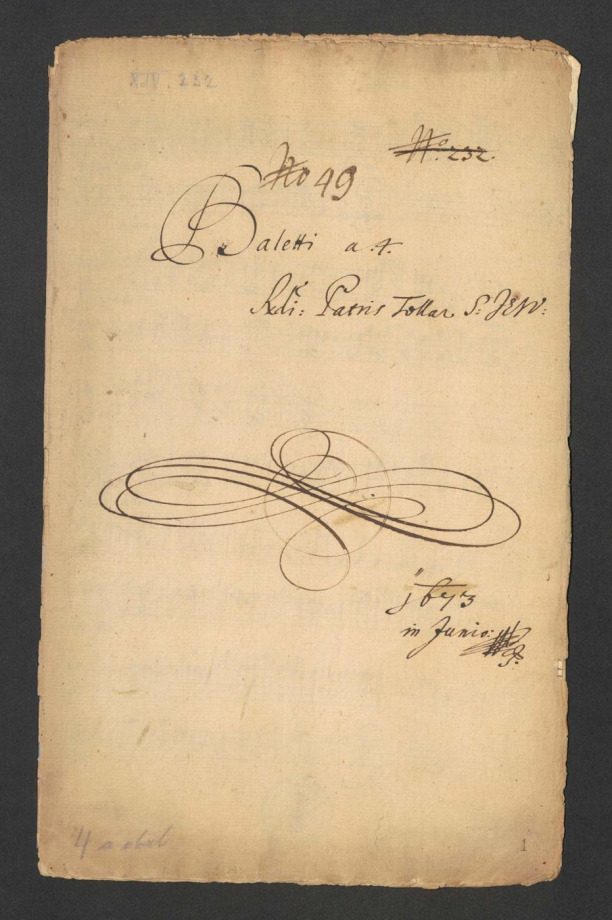 XIV. 232
No. 232.
No 49
Baletti a .4.
Rdi: Patris Tollar S: JESV:
1673
in Junio:
4 a obal
1